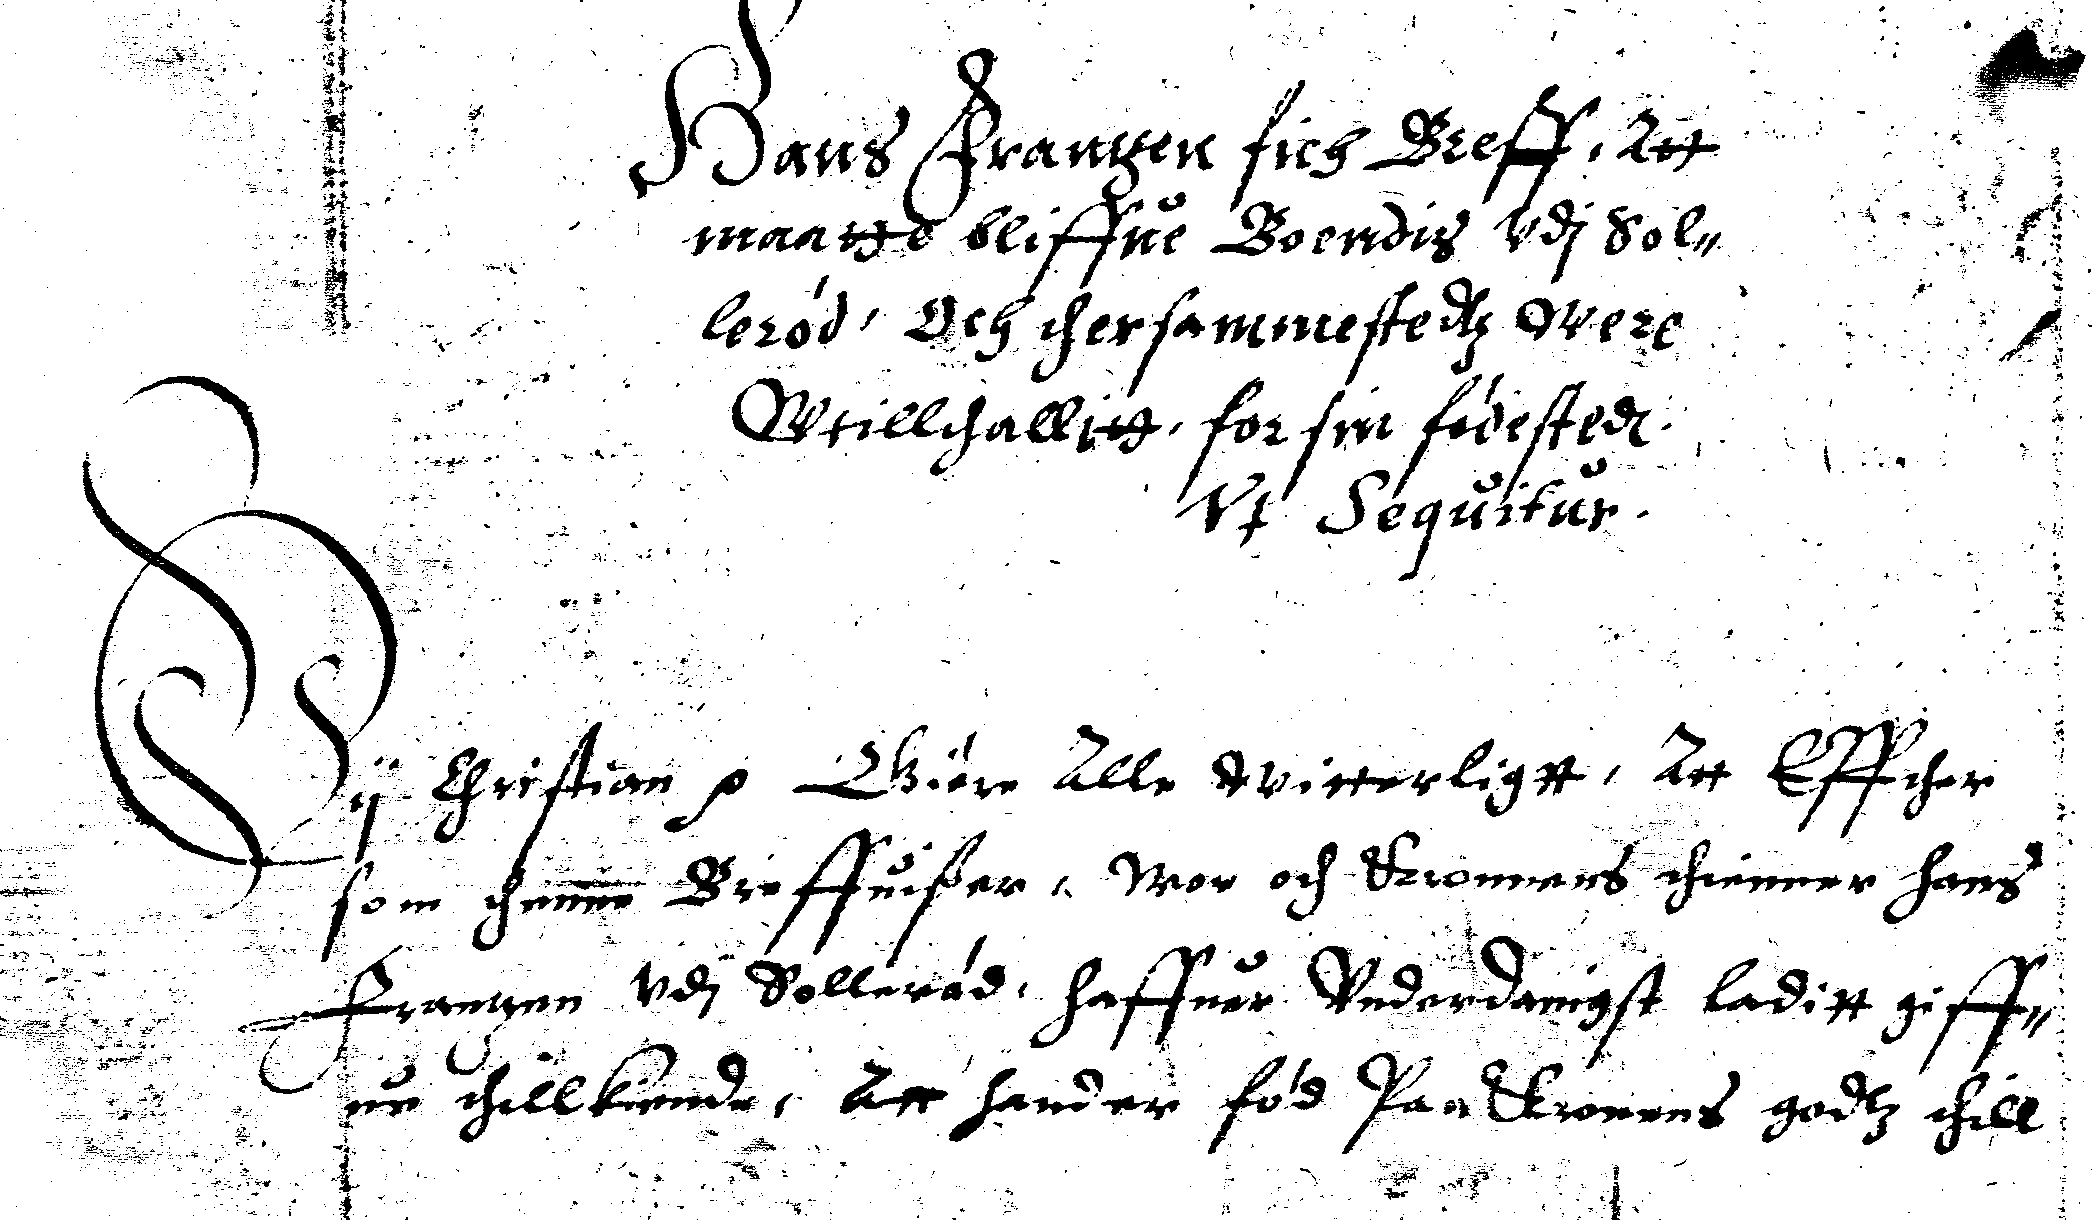 Hans Frantzen fich Breff, Att
maatte bliffue Boendis vdj Sol„
lerød, Och thersammestedtz Were
Wtillthallitt, for sin fødested.
Vt Sequitur.
Wij Christian p Giøre Alle witterligtt, Att Effther
som thenne Breffuißer, Wor och Kronnens thienner Hans
Frantzen vdj Sollerød, haffuer Vnderdanigst laditt giff„
ue thillkiende, Att hand er fød Paa Kronens godtz thill